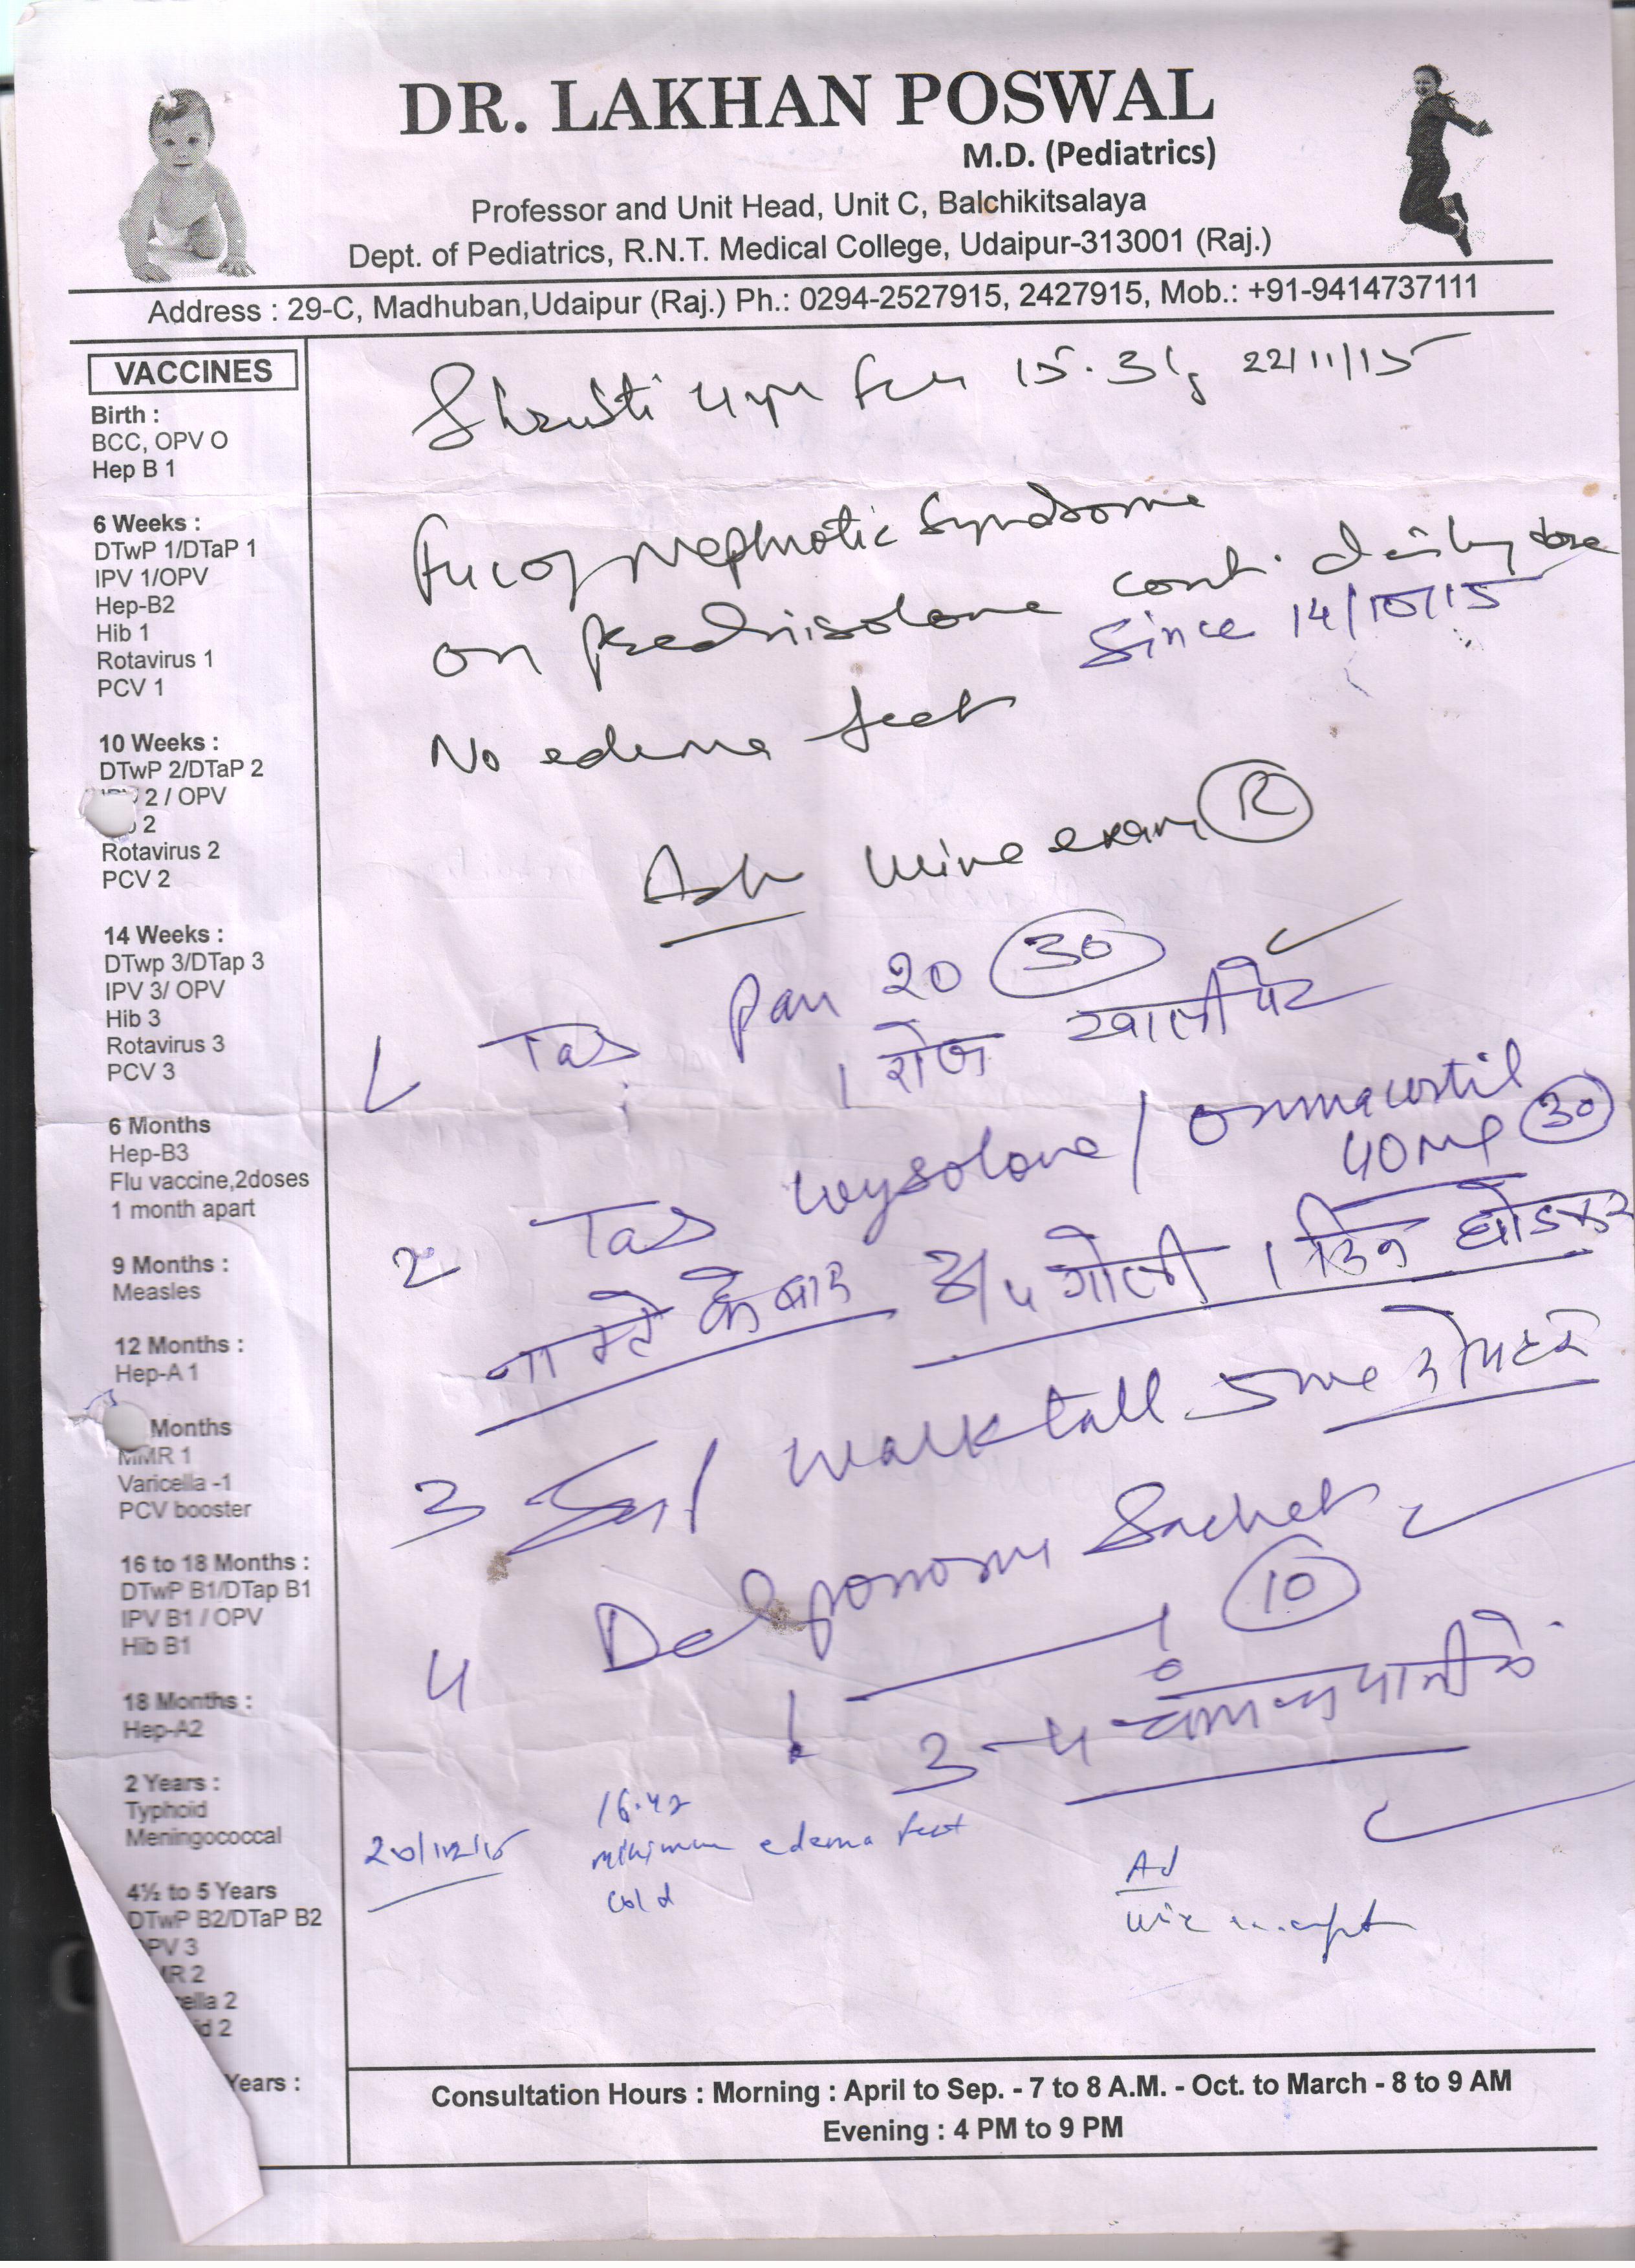 DR. LAKHAN POSWAL
M.D. (Pediatrics)
Professor and Unit Head, Unit C, Balchikitsalaya
Dept. of Pediatrics, R.N.T. Medical College, Udaipur-313001 (Raj.)
Address : 29-C, Madhuban,Udaipur (Raj.) Ph.: 0294-2527915, 2427915, Mob.: +91-9414737111
VACCINES
Birth :
BCC, OPV O
Hep B 1
6 Weeks :
DTwP 1/DTaP 1
IPV 1/OPV
Hep-B2
Hib 1
Rotavirus 1
PCV 1
10 Weeks :
DTwP 2/DTaP 2
2 / OPV
2
Rotavirus 2
PCV 2
14 Weeks :
DTwp 3/DTap 3
IPV 3/ OPV
Hib 3
Rotavirus 3
PCV 3
6 Months
Hep-B3
Flu vaccine,2doses
1 month apart
9 Months :
Measles
12 Months :
Hep-A 1
Months
MMR 1
Varicella -1
PCV booster
16 to 18 Months :
DTwP B1/DTap B1
IPV B1 / OPV
Hib B1
18 Months :
Hep-A2
2 Years :
Typhoid
Meningococcal
4½ to 5 Years
DTwP B2/DTaP B2
PV 3
R 2
ella 2
id 2
Years :
Shrusti 4yr 15.3 22/11/15
Nephrotic Syndrome
on prednisolone cont. daily dose
since 14/10/15
No edema feet
Adv urine exam R
1 Tab Pan 20 30
1 रोज खाली पेट
2 Tab wysolone / omnacortil
40mg 30
नाश्ते के बाद 3/4 गोली 1 दिन छोडकर
3 Syp walktall 5ml दोपहर
4 Sachet
10
3-4 चम्मच पानी में
20/12/15 16.42
minimum edema feet
cold
Ad
Consultation Hours : Morning : April to Sep. - 7 to 8 A.M. - Oct. to March - 8 to 9 AM
Evening : 4 PM to 9 PM